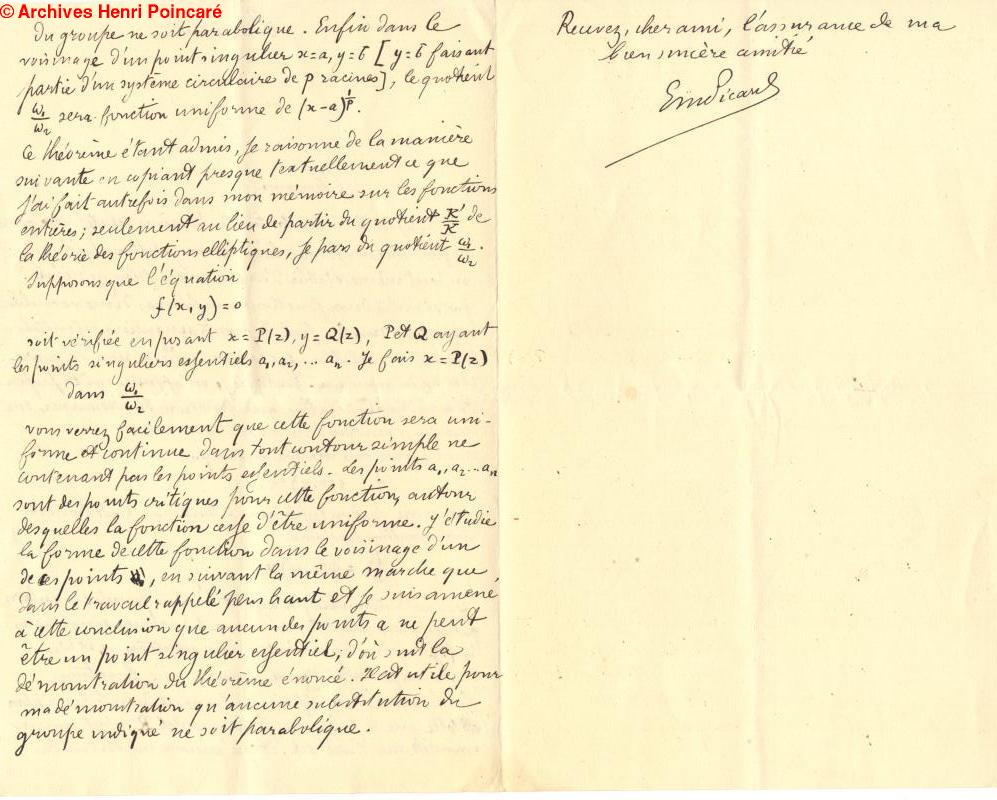 © Archives Henri Poincaré
du groupe ne soit parabolique. Enfin dans le
voisinage d'un point singulier x=a, y=b [y=b faisant
partie d'un système circulaire de p racines], le quotient
ω₁/ω₂ sera fonction uniforme de (x-a)^{1/p}.
Ce théorème étant admis, je raisonne de la manière
suivante en copiant presque textuellement ce que
j'ai fait autrefois dans mon mémoire sur les fonctions
entières; seulement au lieu de partir du quotient K'/K de
la théorie des fonctions elliptiques, je pars du quotient ω₁/ω₂.
Supposons que l'équation
f(x, y) = 0
soit vérifiée en posant x = P(z), y = Q(z), P et Q ayant
les points singuliers essentiels a₁, a₂, ... aₙ. Je fais x = P(z)
dans ω₁/ω₂
vous verrez facilement que cette fonction sera uni-
forme et continue dans tout contour simple ne
contenant pas les points essentiels. Les points a₁, a₂ ... aₙ
sont des points critiques pour cette fonction, autour
desquelles la fonction cesse d'être uniforme. J'étudie
la forme de cette fonction dans le voisinage d'un
de ces points, en suivant la même marche que
dans le travail rappelé plus haut et je suis amené
à cette conclusion que aucun des points a ne peut
être un point singulier essentiel; d'où suit la
démonstration du théorème énoncé. Il est utile pour
ma démonstration qu'aucune substitution du
groupe indiqué ne soit parabolique.
Recevez, cher ami, l'assurance de ma
bien sincère amitié
Em Picard